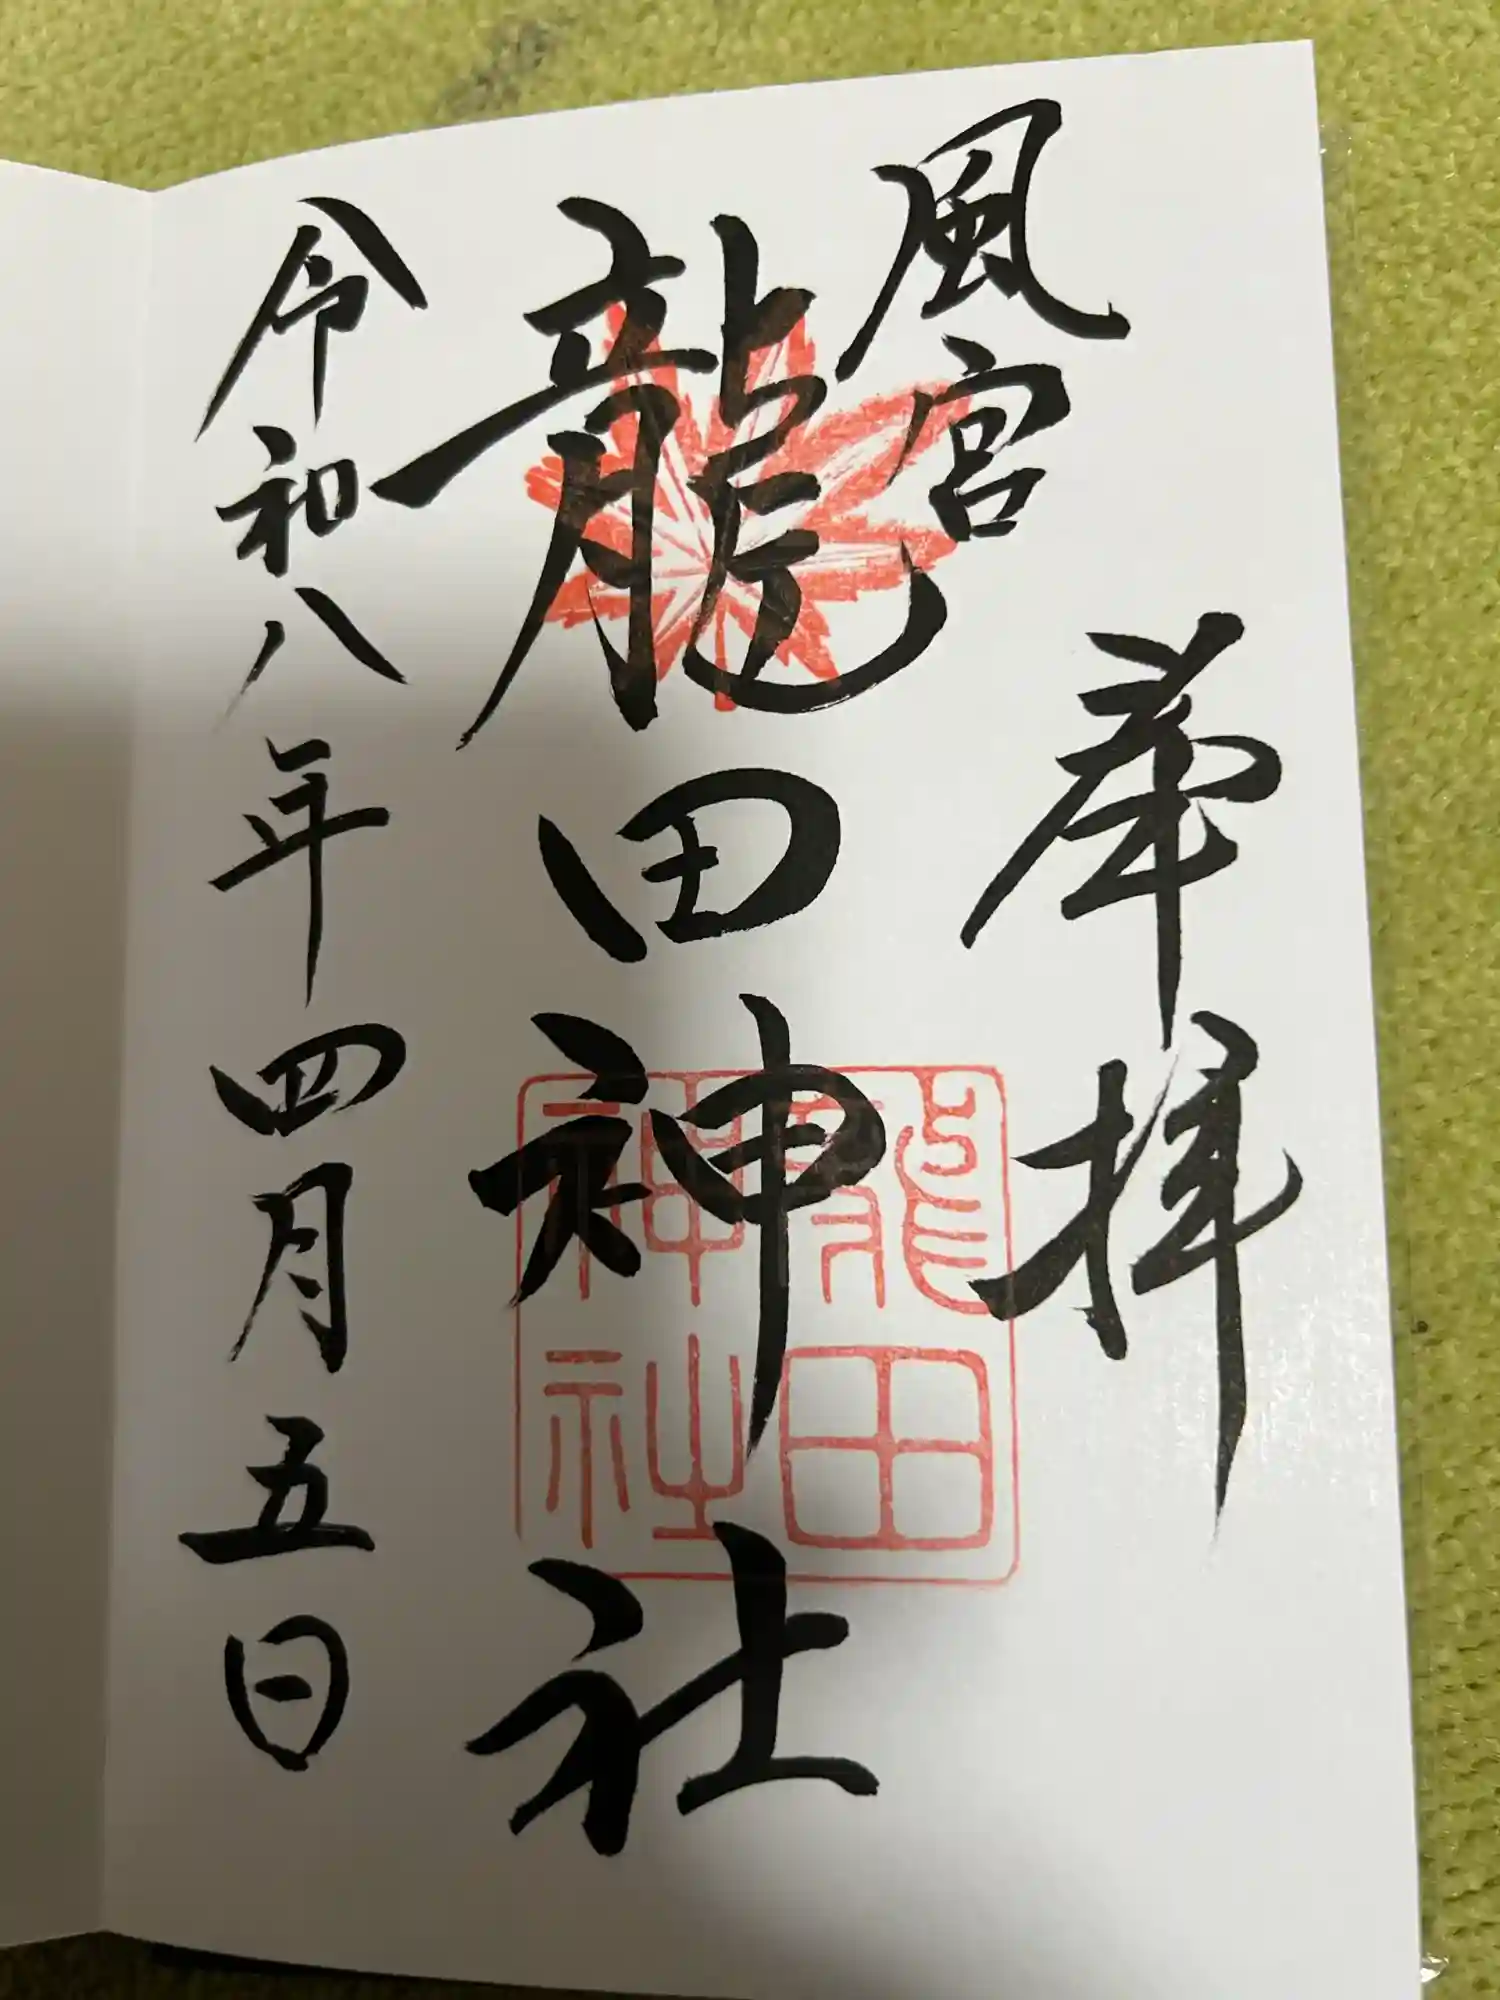 奉拝
風宮
龍田神社
龍田
神社
令和八年四月五日